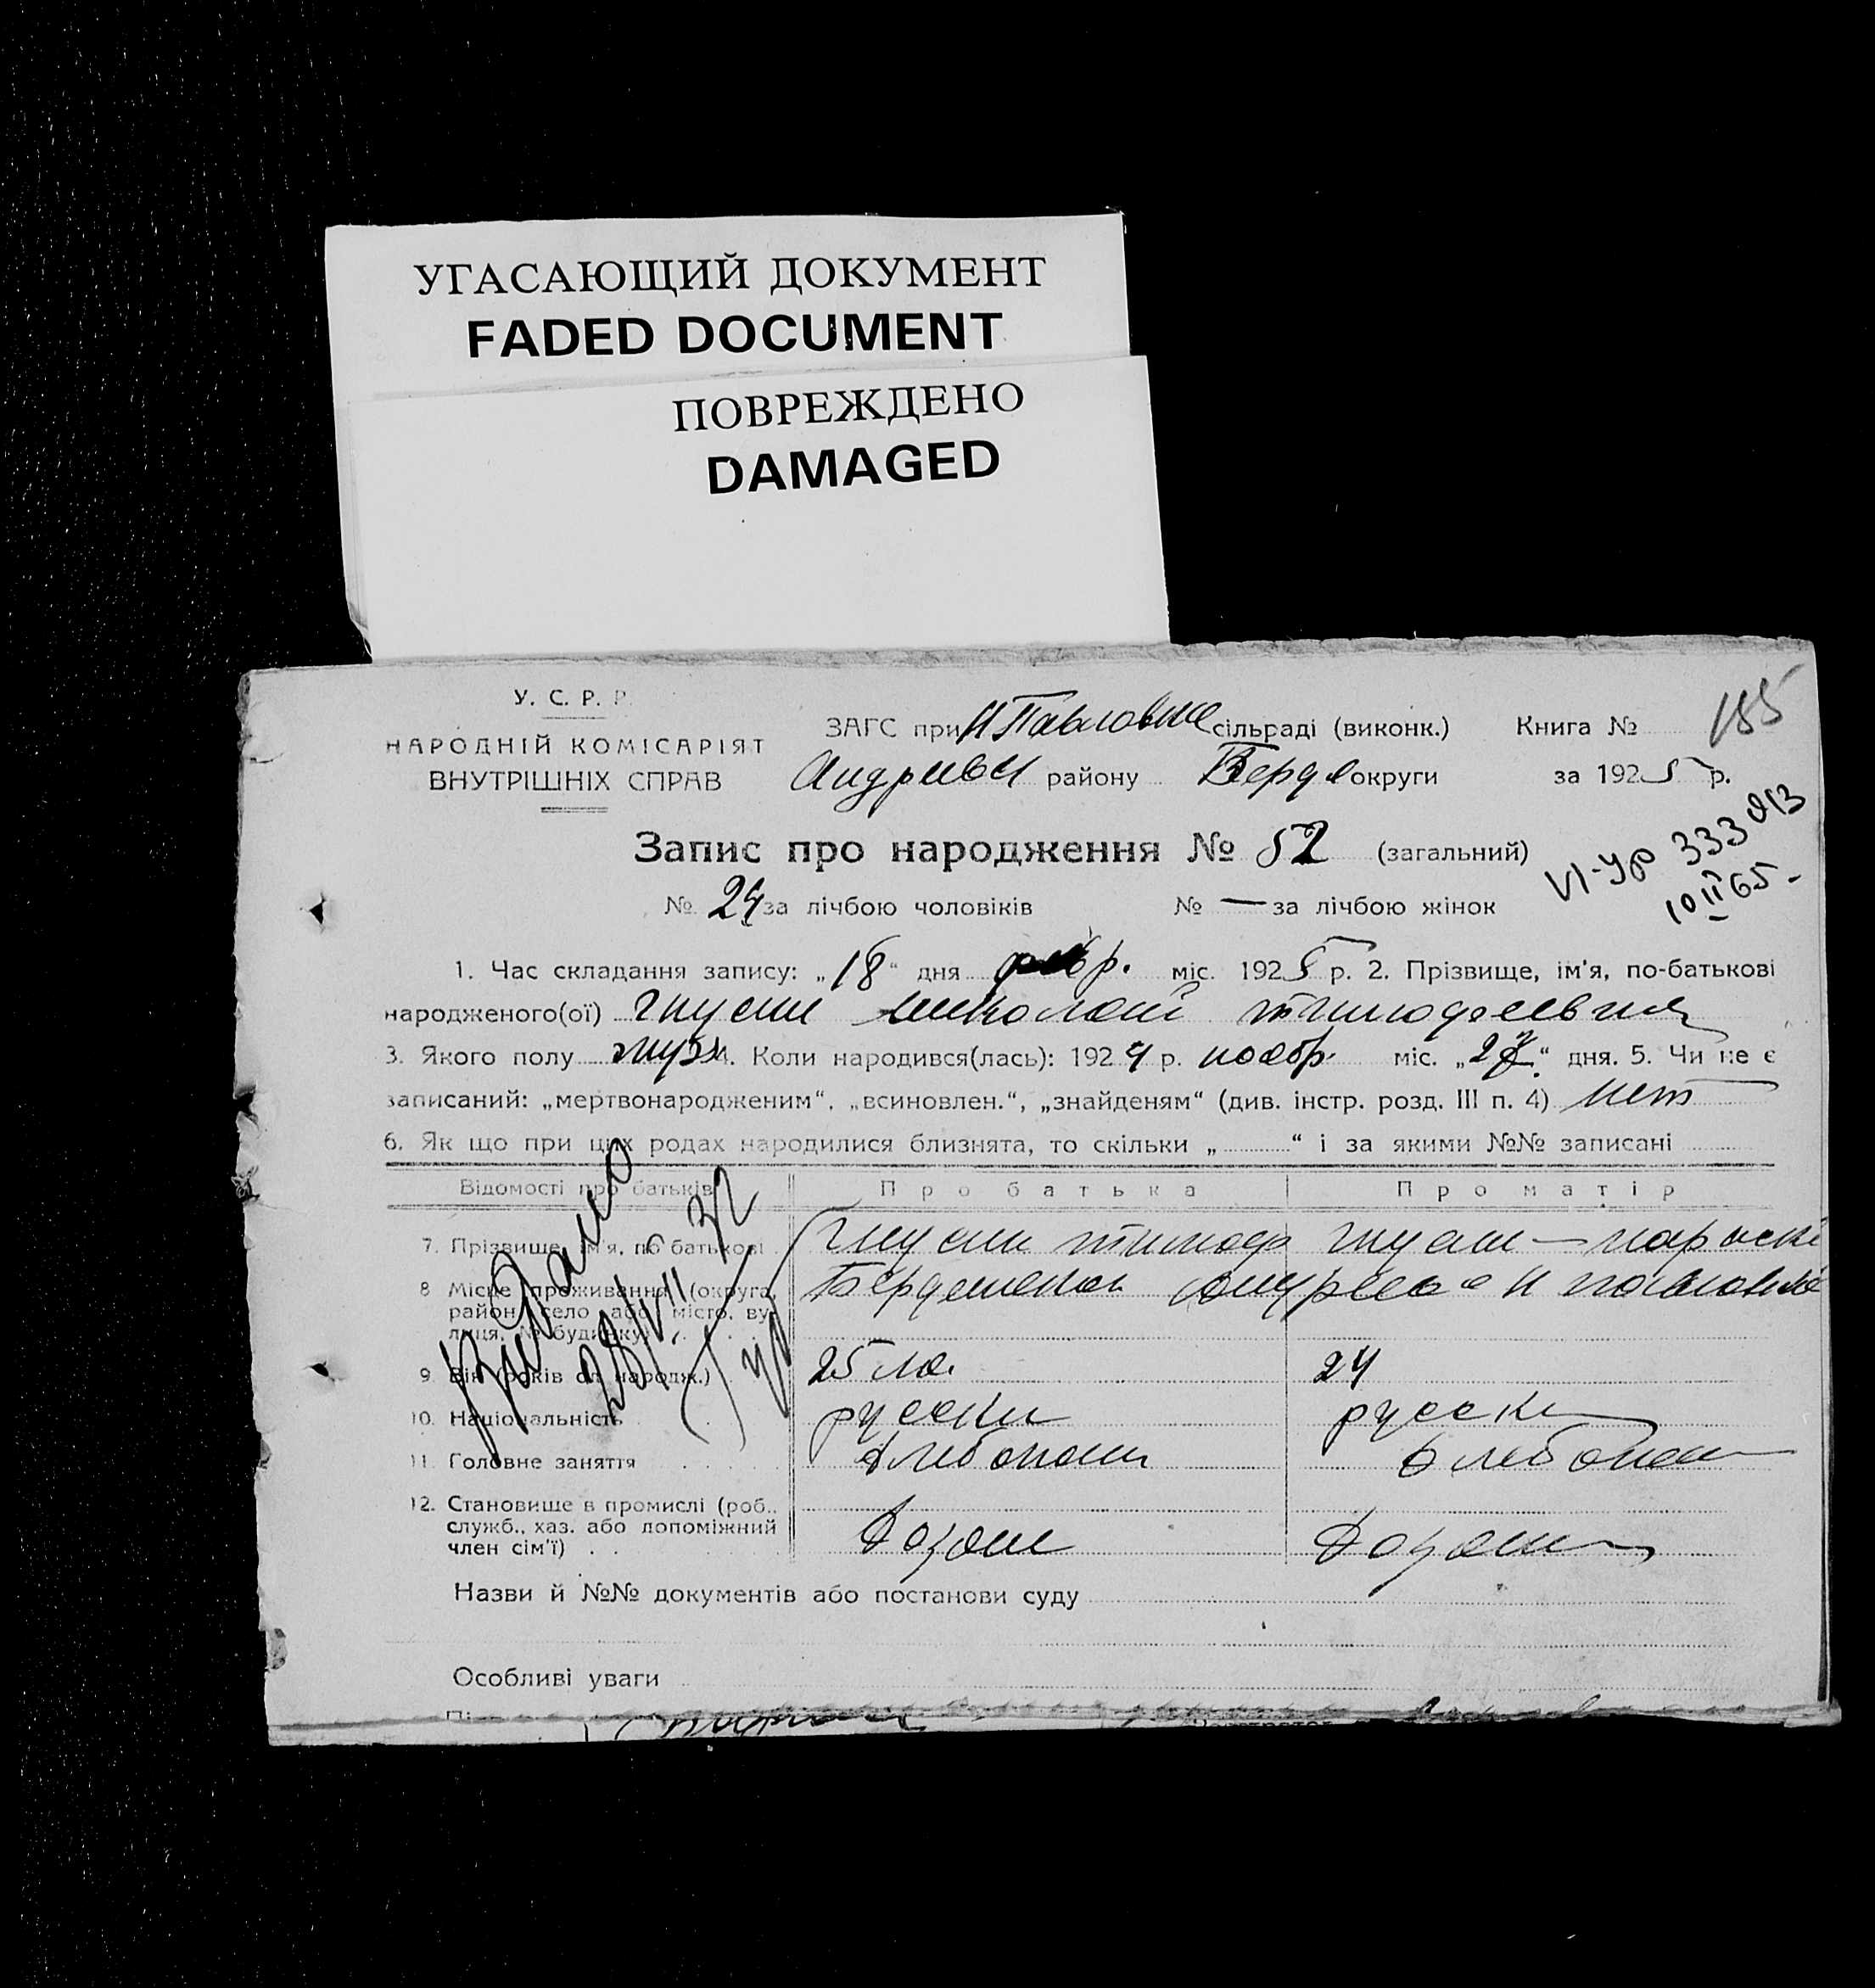 УГАСАЮЩИЙ ДОКУМЕНТ
FADED DOCUMENT
ПОВРЕЖДЕНО
DAMAGED
У. С. Р. Р.
НАРОДНІЙ КОМІСАРІЯТ
ВНУТРІШНІХ СПРАВ
ЗАГС при Н Павловке сільраді (виконк.) Книга № 185
района Бердя округи за 1925 р.
Запис про народження № 52 (загальний)
333
10 II 65 -
№ 24 за лічбою чоловіків № — за лічбою жінок
1. Час складання запису: „18“ дня февр. міс. 1925 р. 2. Прізвище, ім'я, по-батькові
народженого(ої) николай тимофеевич
3. Якого полу муж 4. Коли народився(лась): 1924 р. ноябр. міс. „27“ дня. 5. Чи не є
записаний: „мертвонародженим“, „всиновлен.“, „знайденям“ (див. інстр. розд. III п. 4) нет
6. Як що при цих родах народилися близнята, то скільки „ “ і за якими №№ записані
Відомості про батьків Про батька Про матір
7. Прізвище, ім'я, по батькові тимоф
8 Місце проживання (округа,
район, село або місто, ву-
лиця, № будинку)
9. Вік (років од народж.) 25 ле. 24
10. Національність русски русски
11. Головне заняття хлебопаш хлебопаш
12. Становище в промислі (роб.,
служб., хаз. або допоміжний
член сім'ї) хозяи хозяи
Назви й №№ документів або постанови суду
Особливі уваги
Видано